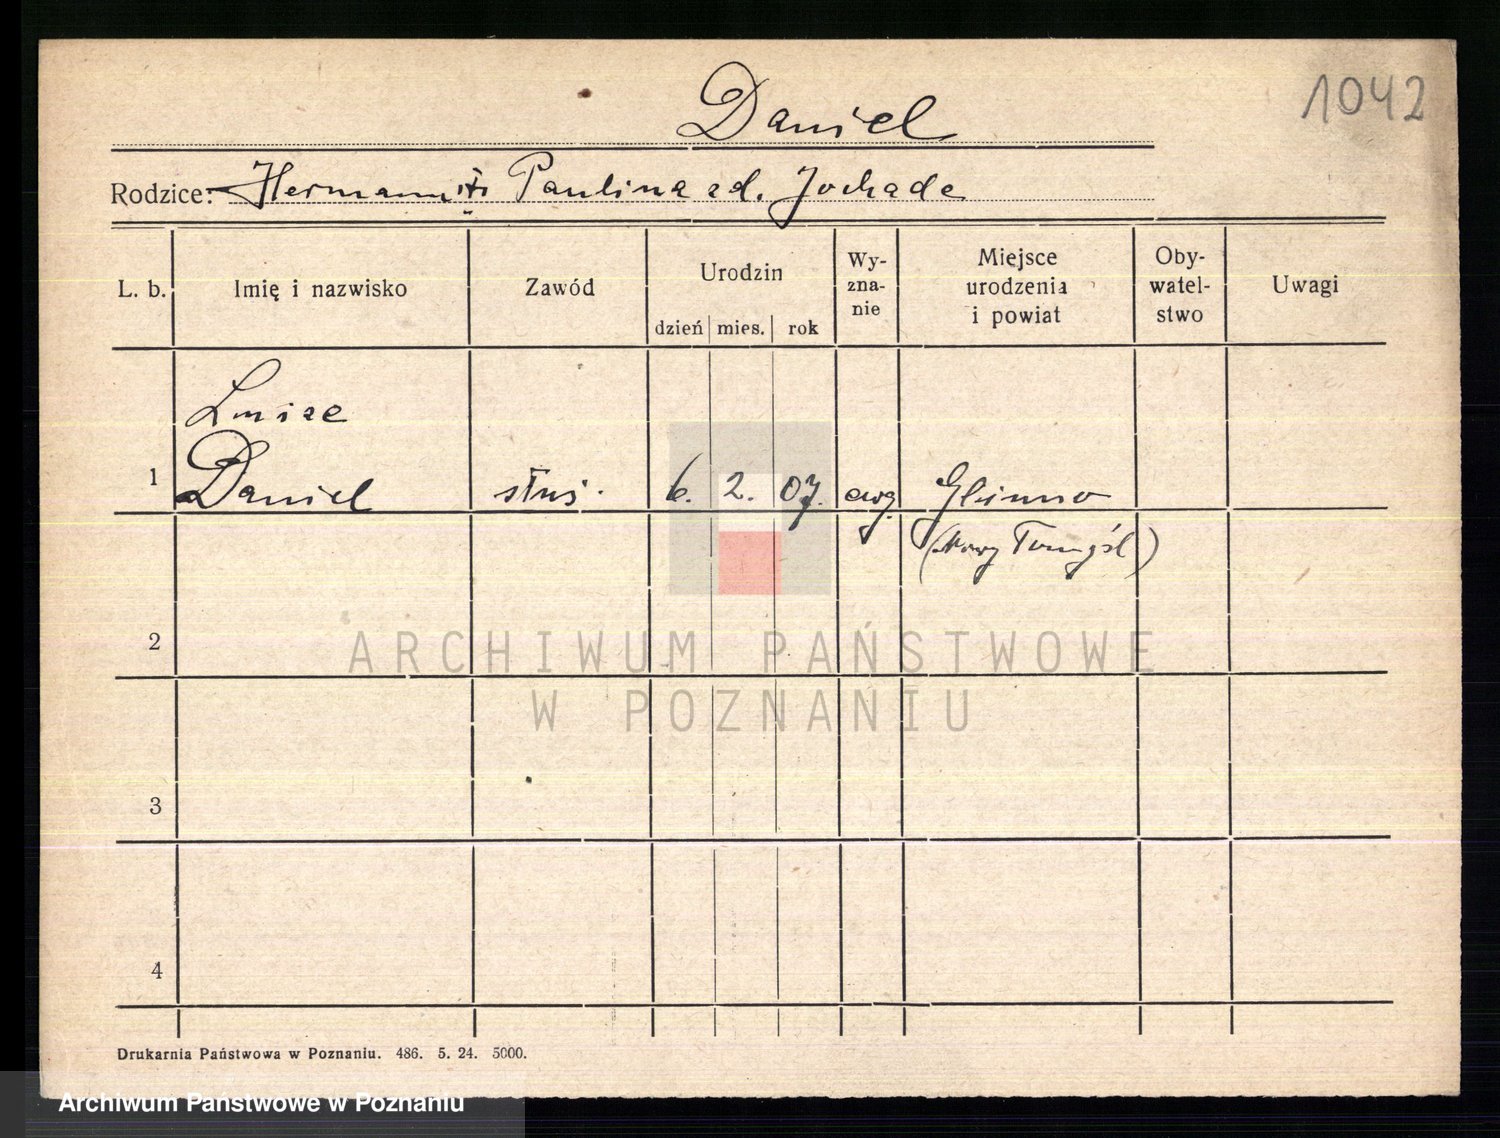 1042
Daniel
Rodzice: Hermann Paulina zd. Jochade
L. b.
Imię i nazwisko
Zawód
Urodzin
dzień mies. rok
Wy-
zna-
nie
Miejsce
urodzenia
i powiat
Oby-
watel-
stwo
Uwagi
Luise
1 Daniel służ. 6. 2. 07. ewg. Glinno
(Nowy Tomyśl)
2
ARCHIWUM PAŃSTWOWE
W POZNANIU
3
4
Drukarnia Państwowa w Poznaniu. 486. 5. 24. 5000.
Archiwum Państwowe w Poznaniu